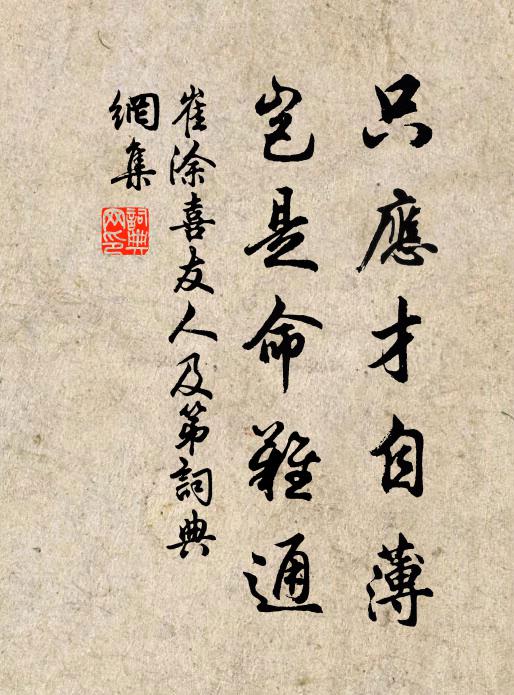 只應才自薄
豈是命難通
崔涂喜友人及第詞典
網集
詞典網印